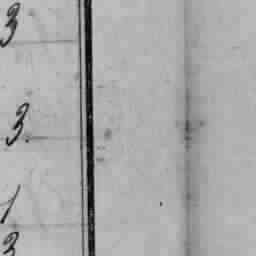 3
3.
1
3